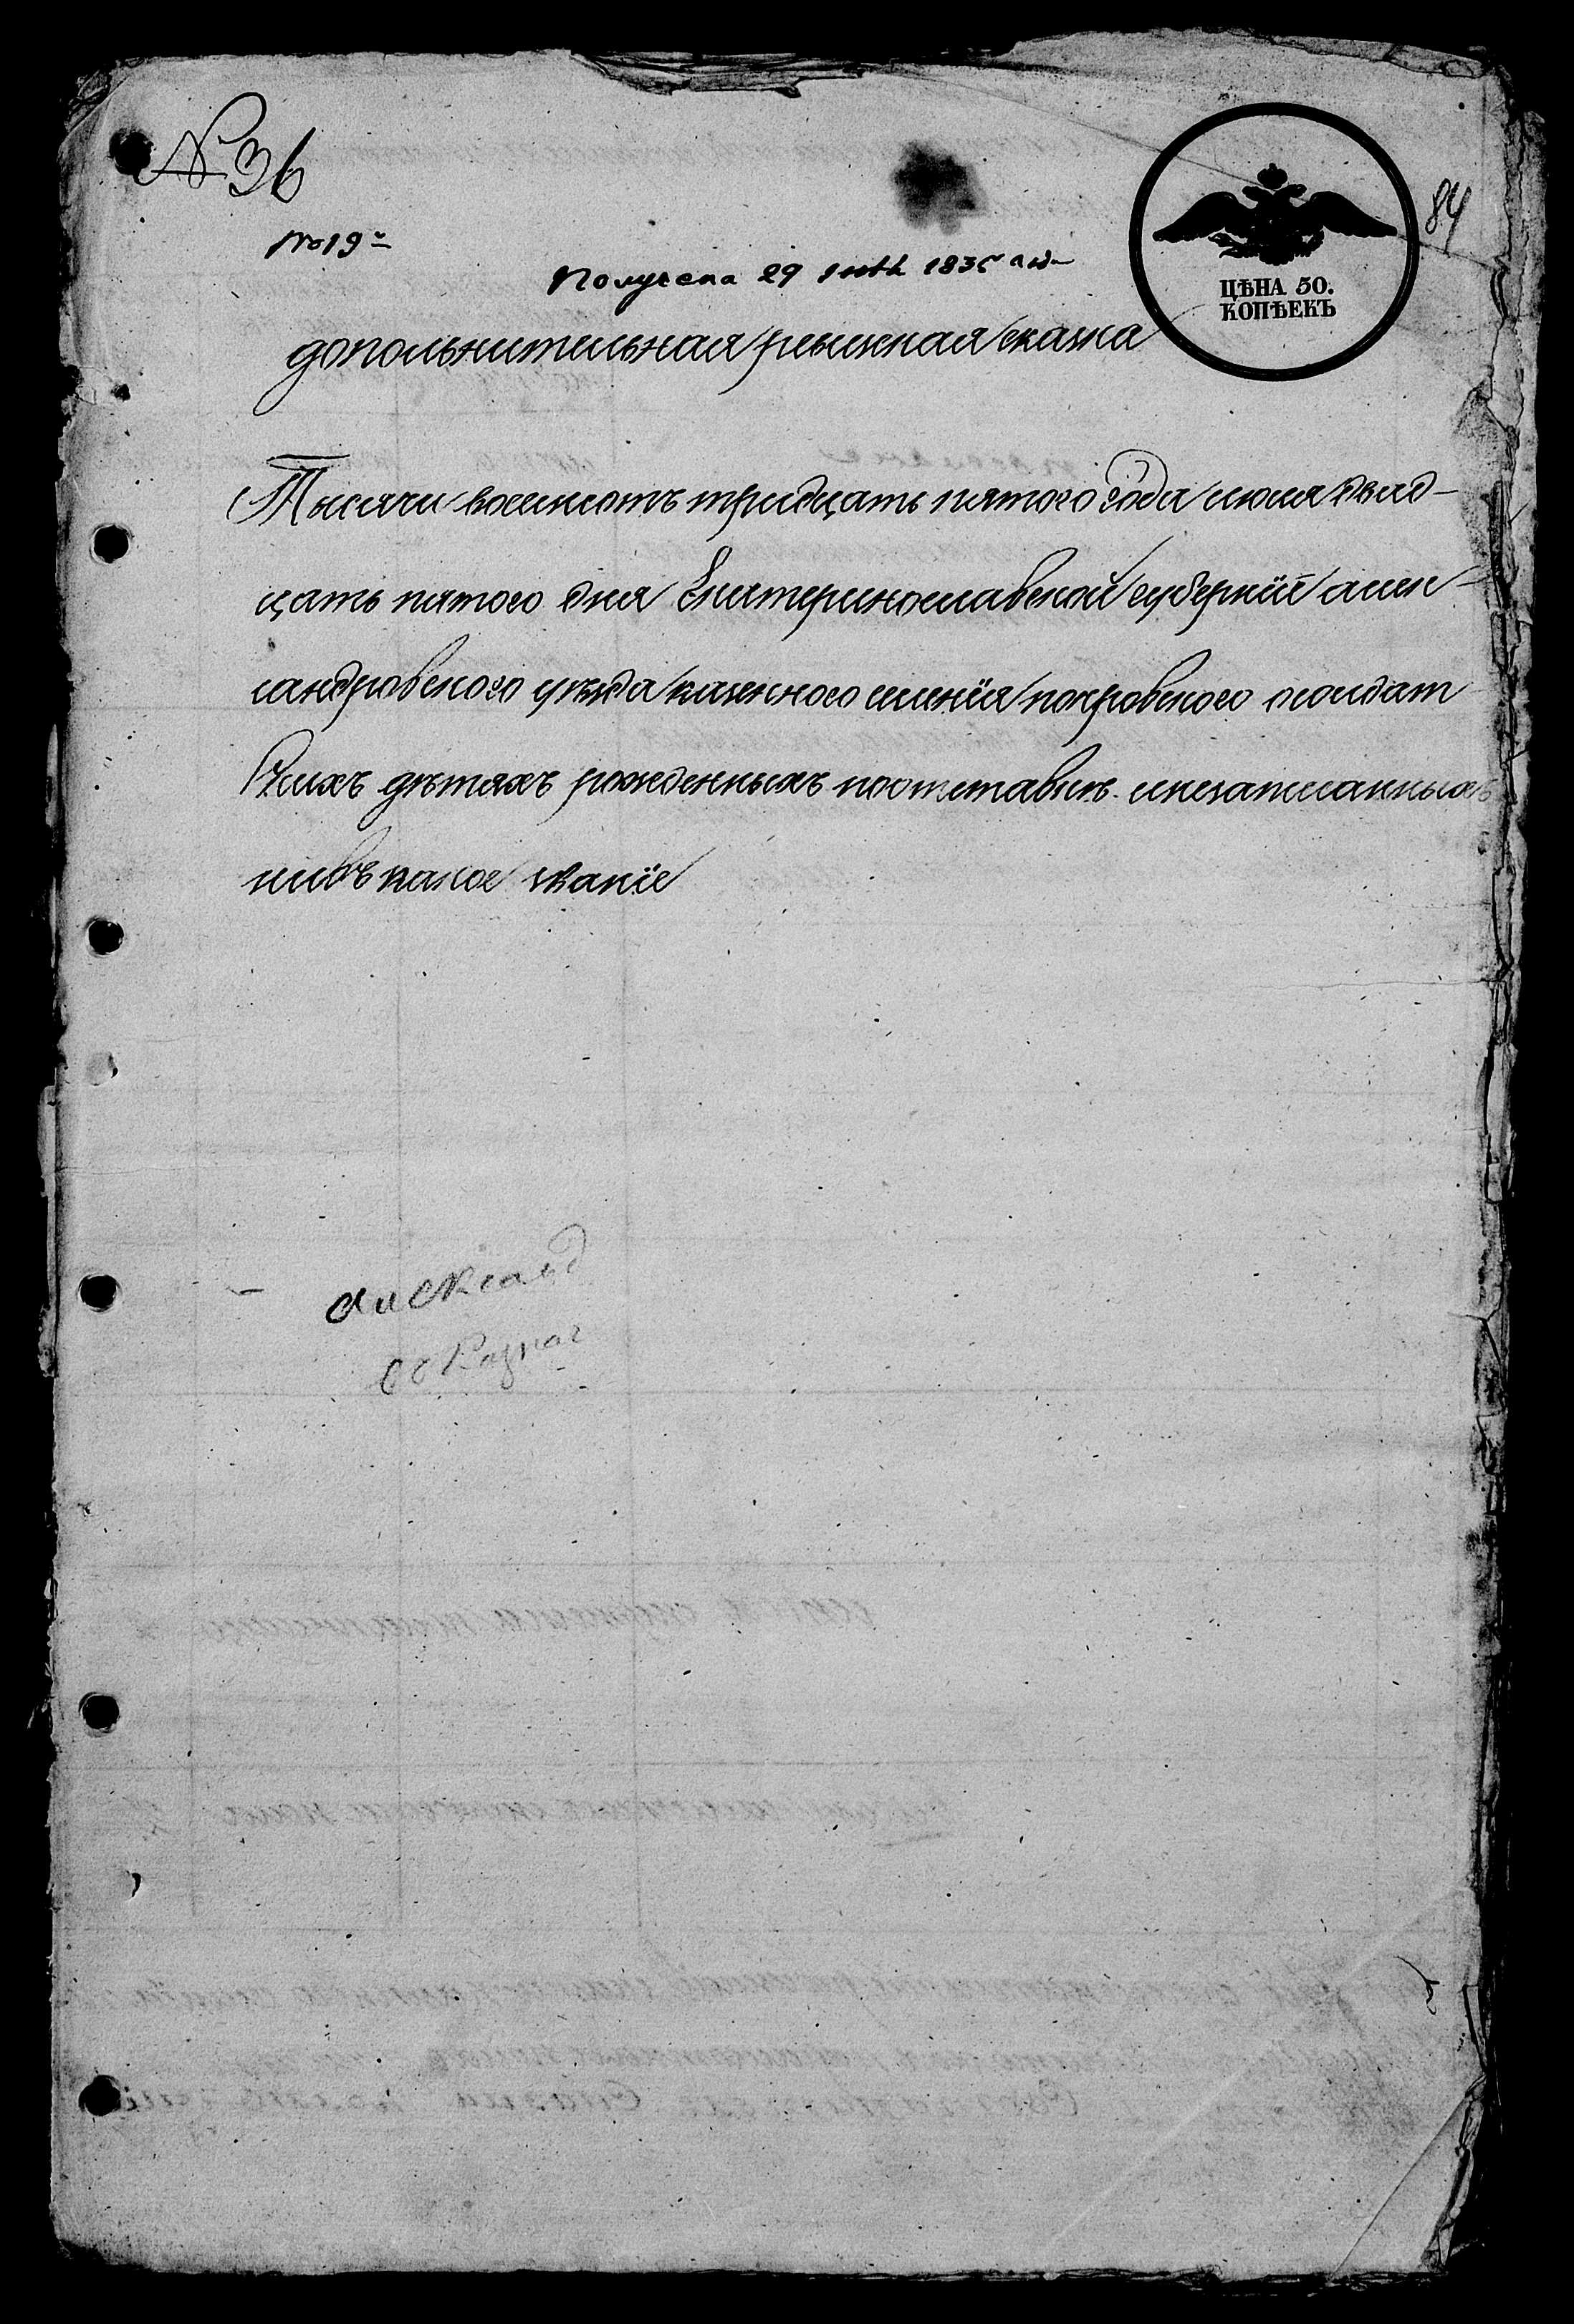 № 36
84
№ 19й
Получена 29 1835 года
ЦѢНА 50.
КОПѢЕКЪ
дополнительная ревижская скаска
Тысячи восемсотъ тридцать пятого года июня двад-
цать пятого дня Екатеринославской губернїи алек-
сандровского уѣзда казенного селенїя покровского осолдат
скихъ дѣтяхъ рожденныхъ поотставкѣ инезаписанныхъ
нивъкакое званїе
Александ